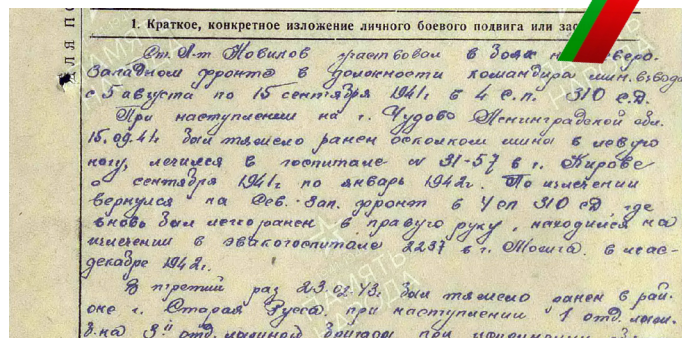 1. Краткое, конкретное изложение личного боевого подвига или зас
ДЛЯ П
Ст. Л-т Новиков участвовал в боях на Северо.
Западном фронте в должности командира мин. взвода
с 5 августа по 15 сентября 1941г в 4 с.п. 310 с.д.
При наступлении на г. Чудово Ленинградской обл.
15.09.41г. был тяжело ранен осколком мины в левую
ногу, лечился в госпитале № 31-57 в г. Кирове
с сентября 1941г по январь 1942г. По излечении
вернулся на Сев.-Зап. фронт в 4 сп 310 сд где
вновь был легко ранен в правую руку, находился на
излечении в эвакогоспитале 2237 в г.
декабре 1942г.
В третий раз 23.02.43. был тяжело ранен в рай-
оне г. Старая Русса при наступлении 1 отд. лыжн.
б-на 3й отд. лыжной бригады при
ПАМЯТЬ НАРОДА